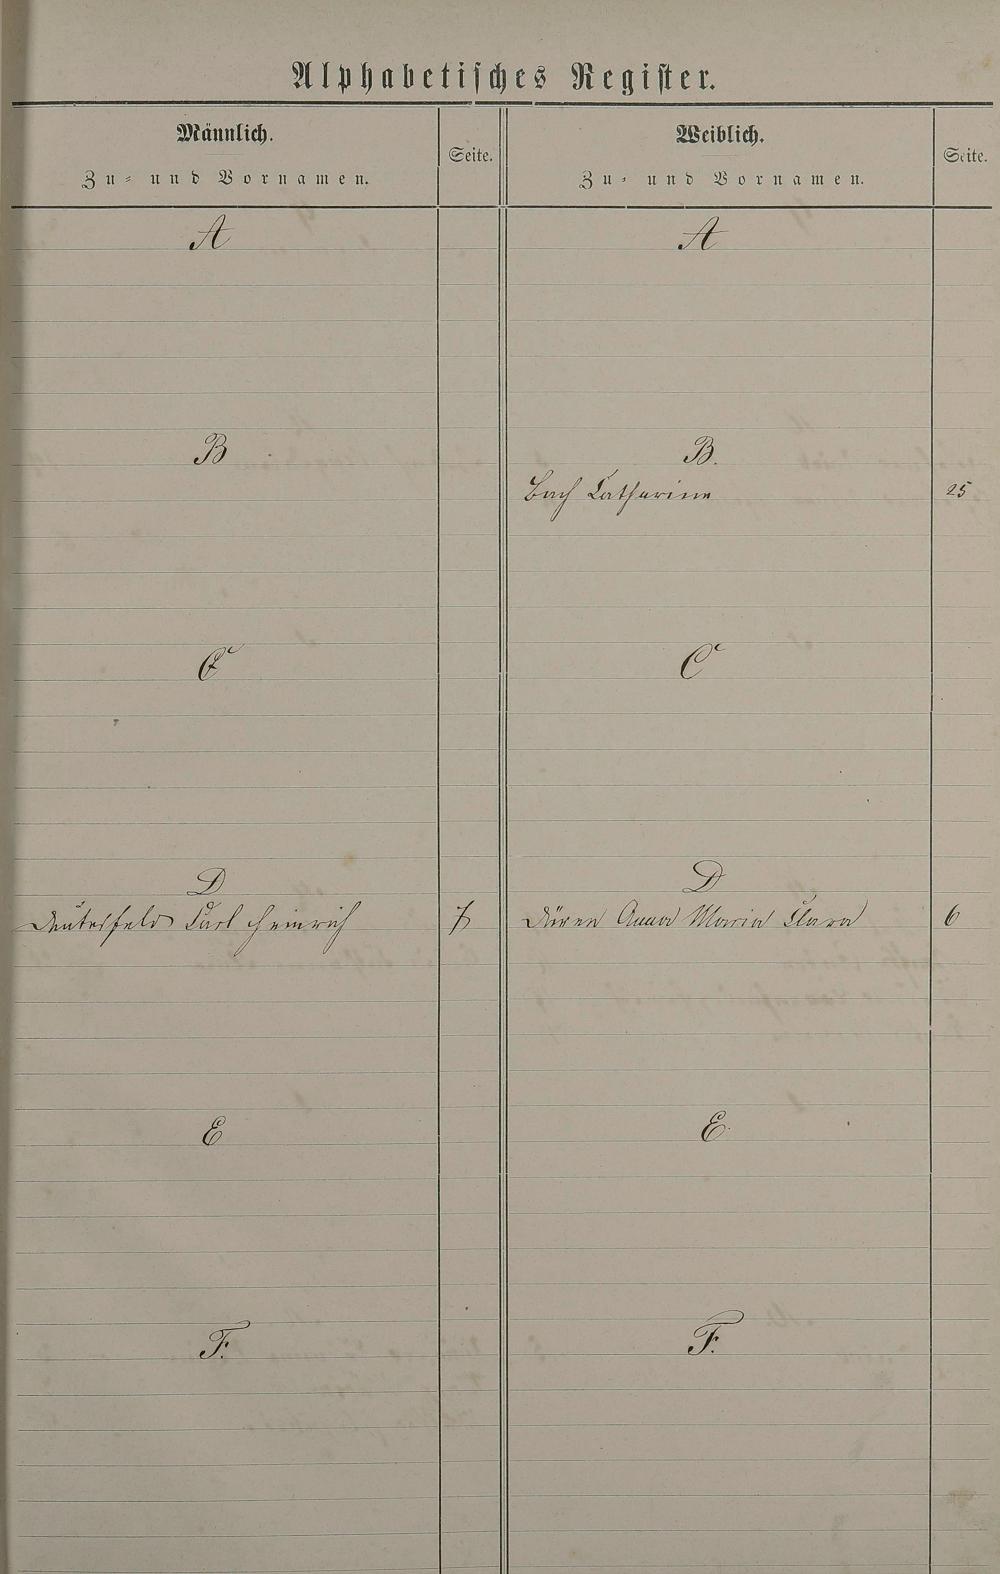 Alphabetisches Register.
Männlich.
Zu- und Vornamen.
Seite.
Weiblich.
Zu- und Vornamen.
Seite.
A
A
B
B.
Bach Catharine 25
C
C
D
D
Carl Heinrich 7
Düren Anna Maria Clara 6
E
E
F.
F.